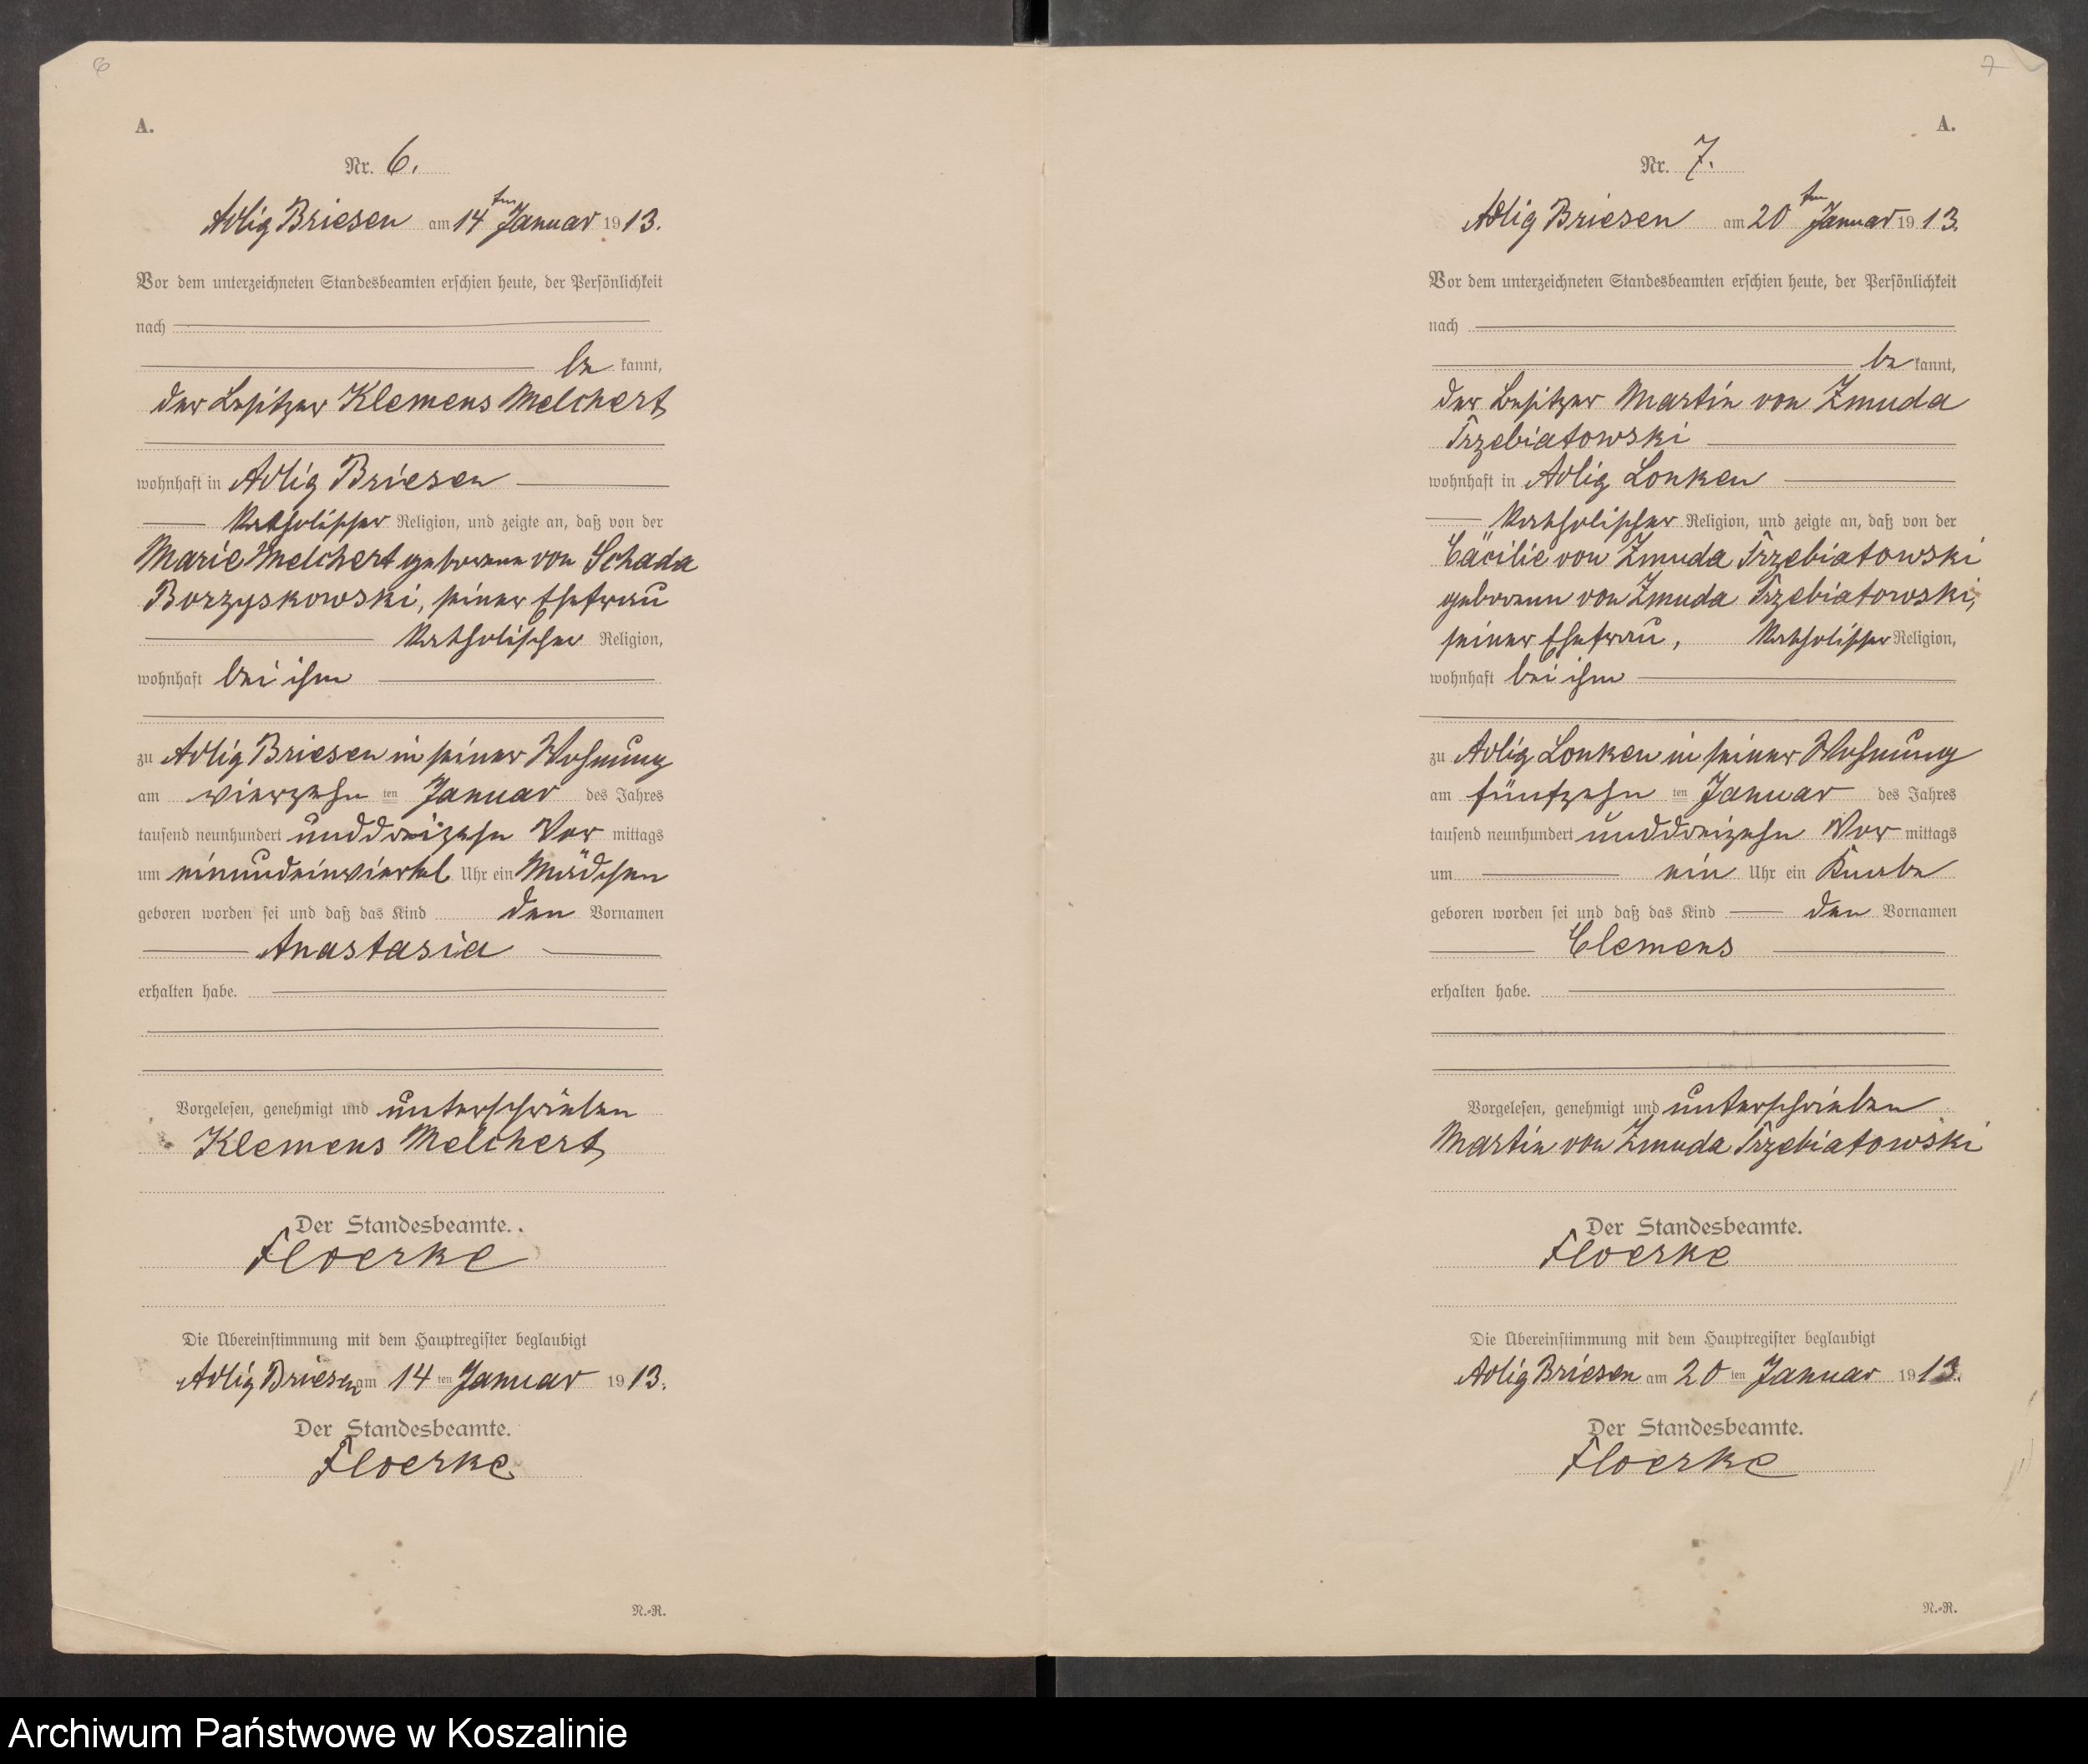 6
A.
Nr. 6.
Adlig Briesen am 14ten Januar 1913.
Vor dem unterzeichneten Standesbeamten erschien heute, der Persönlichkeit
nach
be kannt,
der Besitzer Klemens Melchert
wohnhaft in Adlig Briesen
katholischer Religion, und zeigte an, daß von der
Marie Melchert geborenen von Schada
Borzyskowski, seiner Ehefrau
katholischer Religion,
wohnhaft bei ihm
zu Adlig Briesen in seiner Wohnung
am vierzehn ten Januar des Jahres
tausend neunhundert unddreizehn Vor mittags
um einundeinviertel Uhr ein Mädchen
geboren worden sei und daß das Kind den Vornamen
Anastasia
erhalten habe.
Vorgelesen, genehmigt und unterschrieben
Klemens Melchert
Der Standesbeamte.
Floerke
Die Übereinstimmung mit dem Hauptregister beglaubigt
Adlig Briesen am 14 ten Januar 1913.
Der Standesbeamte.
Floerke
N.-R.
7
A.
Nr. 7.
Adlig Briesen am 20ten Januar 1913.
Vor dem unterzeichneten Standesbeamten erschien heute, der Persönlichkeit
nach
be kannt,
der Besitzer Martin von Zmuda
Trzebiatowski
wohnhaft in Adlig Lonken
katholischer Religion, und zeigte an, daß von der
Cäcilie von Zmuda Trzebiatowski
geborenen von Zmuda Trzebiatowski,
seiner Ehefrau, katholischer Religion,
wohnhaft bei ihm
zu Adlig Lonken in seiner Wohnung
am fünfzehn ten Januar des Jahres
tausend neunhundert unddreizehn Vor mittags
um ein Uhr ein Knabe
geboren worden sei und daß das Kind den Vornamen
Clemens
erhalten habe.
Vorgelesen, genehmigt und unterschrieben
Martin von Zmuda Trzebiatowski
Der Standesbeamte.
Floerke
Die Übereinstimmung mit dem Hauptregister beglaubigt
Adlig Briesen am 20 ten Januar 1913.
Der Standesbeamte.
Floerke
N.-R.
Archiwum Państwowe w Koszalinie